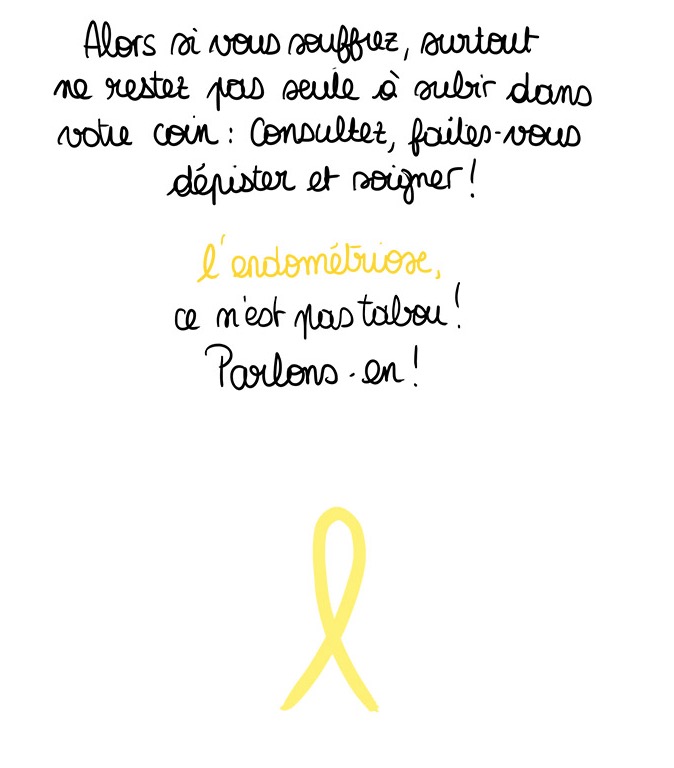 Alors si vous souffrez, surtout
ne restez pas seule à subir dans
votre coin : Consultez, faites-vous
dépister et soigner !
l'endométriose,
ce n'est pas tabou !
Parlons-en !